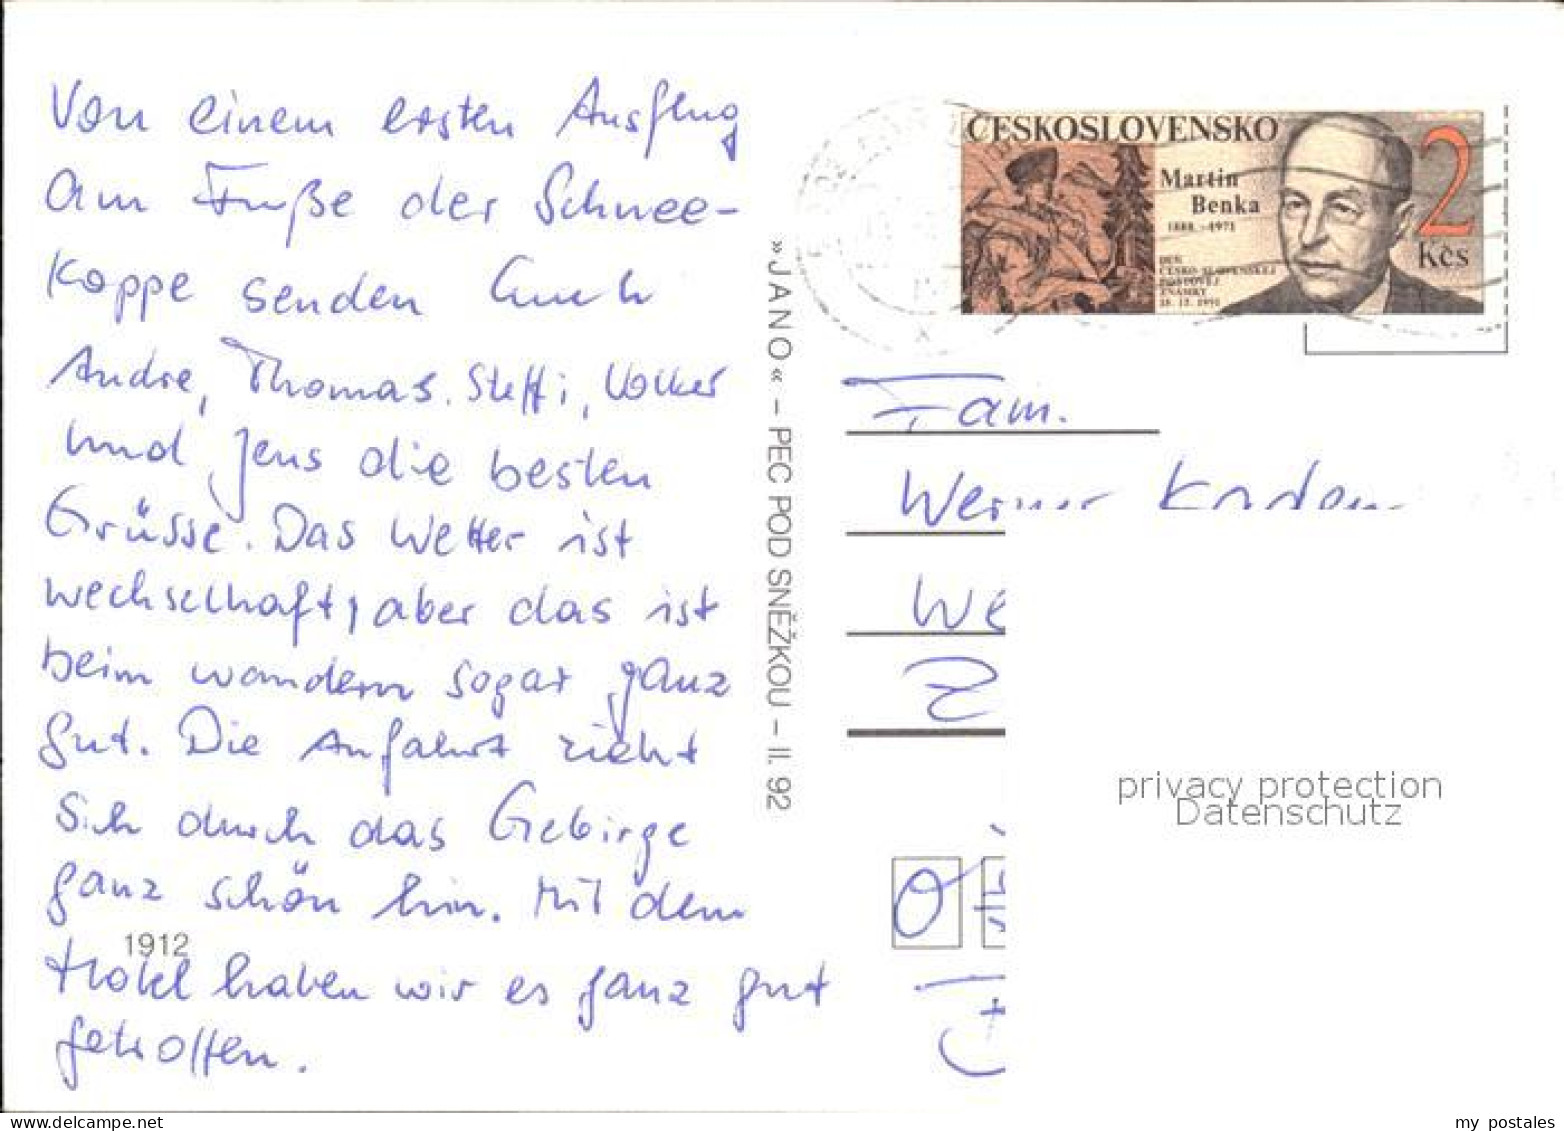 Von einem ersten Ausflug
am Fuße der Schnee-
koppe senden Euch
Andre, Thomas, Steffi, Volker
und Jens die besten
Grüsse. Das Wetter ist
wechselhaft, aber das ist
beim wandern sogar ganz
gut. Die Anfahrt zieht
sich durch das Gebirge
ganz schön hin. Mit dem
Hotel haben wir es ganz gut
getroffen.
1912
»JANO« – PEC POD SNĚŽKOU – II. 92
ČESKOSLOVENSKO
Martin
Benka
1888 – 1971
DEŇ
ČESKO-SLOVENSKEJ
POŠTOVEJ
ZNÁMKY
18. 12. 1991
2
Kčs
Fam.
Werner
We
privacy protection
Datenschutz
my postales